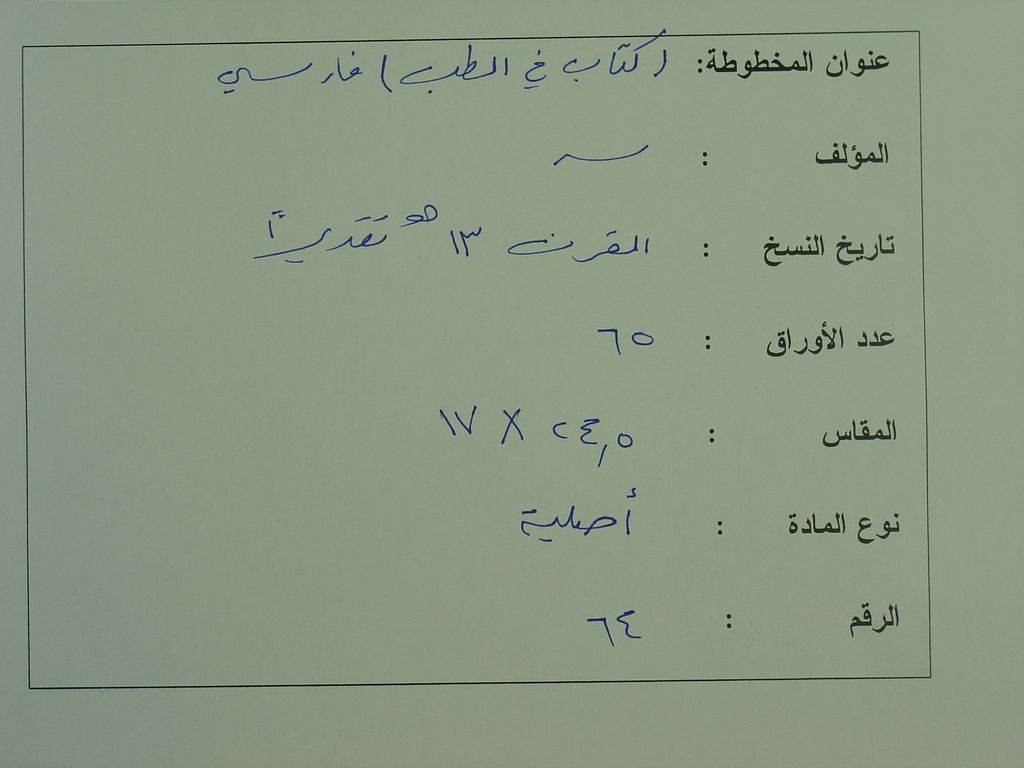 عنوان المخطوطة: (كتاب في الطب) فارسي
المؤلف : ـــ
تاريخ النسخ : القرن ١٣ هـ تقديراً
عدد الأوراق : ٦٥
المقاس : ٢٤,٥ X ١٧
نوع المادة : أصلية
الرقم : ٦٤